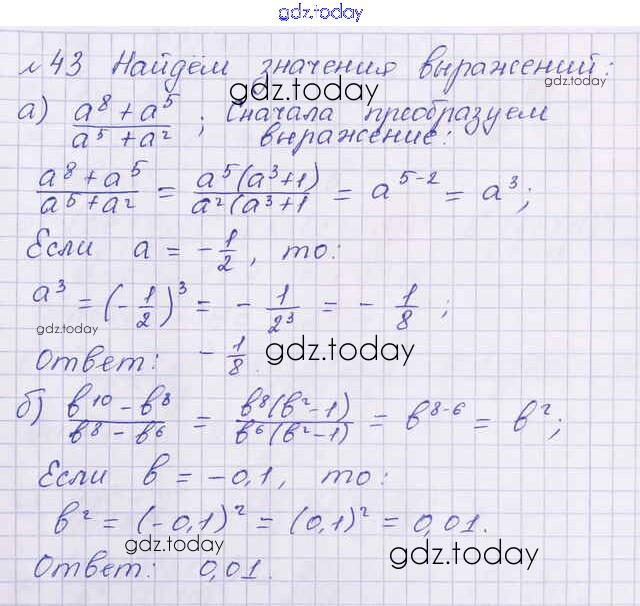 gdz.today
№43 Найдём значения выражений:
gdz.today
gdz.today
а) (a⁸+a⁵)/(a⁵+a²) ; Сначала преобразуем
выражение:
(a⁸+a⁵)/(a⁵+a²) = (a⁵(a³+1))/(a²(a³+1) = a⁵⁻² = a³;
Если a = -1/2, то:
a³ = (-1/2)³ = -1/2³ = -1/8 ;
gdz.today
Ответ: -1/8.
gdz.today
б) (b¹⁰-b⁸)/(b⁸-b⁶) = (b⁸(b²-1))/(b⁶(b²-1)) = b⁸⁻⁶ = b²;
Если b = -0,1, то:
b² = (-0,1)² = (0,1)² = 0,01.
gdz.today
gdz.today
Ответ: 0,01.